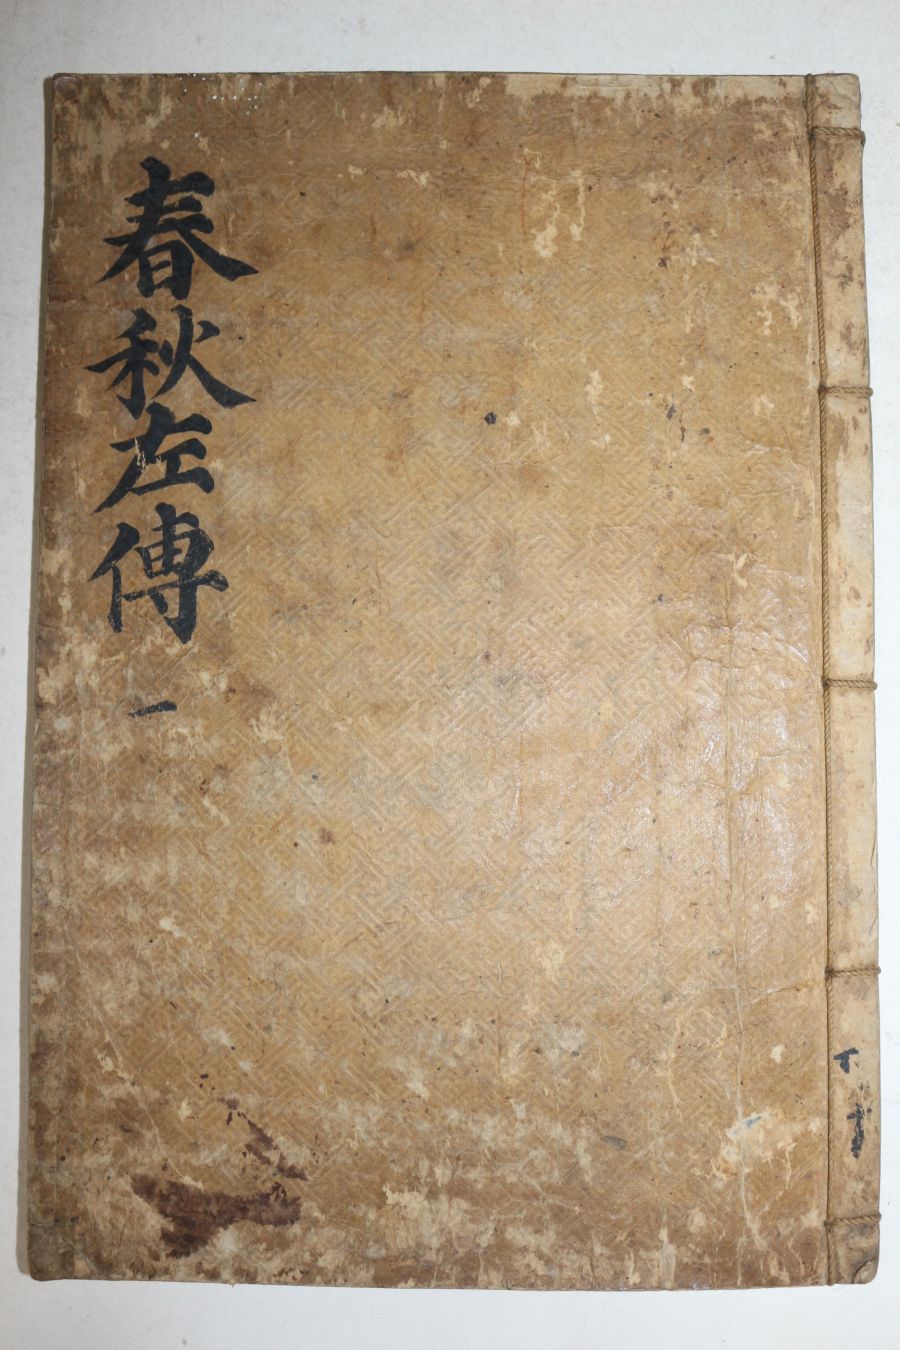 春秋左傳
一